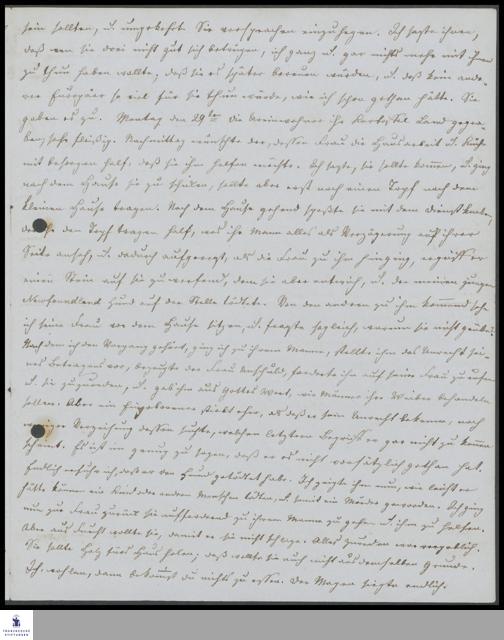 sein sollten, u. umgekehrt Sie versprachen einzusehen. Ich sagte ihnen,
daß wen sie drei nicht gut sich betrügen, ich ganz u. gar nichts mehr mit ihnen
zu thun haben wollte, daß sie es später bereuen würden, u. daß kein ande-
rer Europäer so viel für sie thun würde, wie ich schon gethan hätte. Sie
gaben es zu. Montag den 29ten die Einwohner ihr Kartoffel Land gegra-
ben, sehr fleißig. Nachmittag wünschte der, dessen Frau die Hausarbeit u. Küche
mit besorgen half, daß sie ihm helfen möchte. Ich sagte, sie sollte kommen, u. ging
nach dem Hause sie zu schicken, sollte aber erst noch einen Topf nach dem
kleinen Hause tragen. Nach dem Hause gehend spaßte sie mit dem Dienstknaben,
der den Topf tragen half, was ihr Mann alles als Verzögerung auf ihrer
Seite ansah, u. dadurch aufgeregt, als die Frau zu ihm hinging, ergriff er
einen Stein auf sie zu werfend, dem sie aber entwich, u. der meinen jungen
Neufoundland Hund auf der Stelle tödtete. Von dem anderen zu ihm kommend sehe
ich seine Frau vor dem Hause sitzen, u. fragte sogleich, warum sie nicht grübe.
Nach dem ich den Vorgang gehört, ging ich zu ihrem Manne, stellte ihm das Unrecht sei-
nes Betragens vor, bezeugte der Frau Unschuld, forderte ihn auf seine Frau zu rufen
u. sie zu, u. gab ihm aus Gottes Wort, wie Männer ihre Weiber behandeln
sollten. Aber ein Eingeborener stirbt eher, als daß er sein Unrecht bekenne, noch
weniger Verzeihung desselben suchte, welchen letztern Begriff er gar nicht zu kennen
scheint. Es ist ihm genug zu sagen, daß er es nicht vorsätzlich gethan hat.
Endlich erfuhr ich, daß er den Hund getödtet habe. Ich zeigte ihm nun, wie leicht er
hätte können ein Kind oder andern Menschen tödten, u. somit ein Mörder geworden. Ich ging
nun zur Frau zurück sie auffordernd zu ihrem Manne zu gehen u. ihm zu helfen.
Aber aus Furcht wollte sie, damit er sie nicht schlage. Alles Zureden war vergeblich.
Sie sollte Holz fürs Haus holen; daß wollte sie auch nicht aus demselben Grunde.
Ich, wohlan, dann bekommst du nichts zu essen. Der Magen siegte endlich.
FRANCKESCHE
STIFTUNGEN